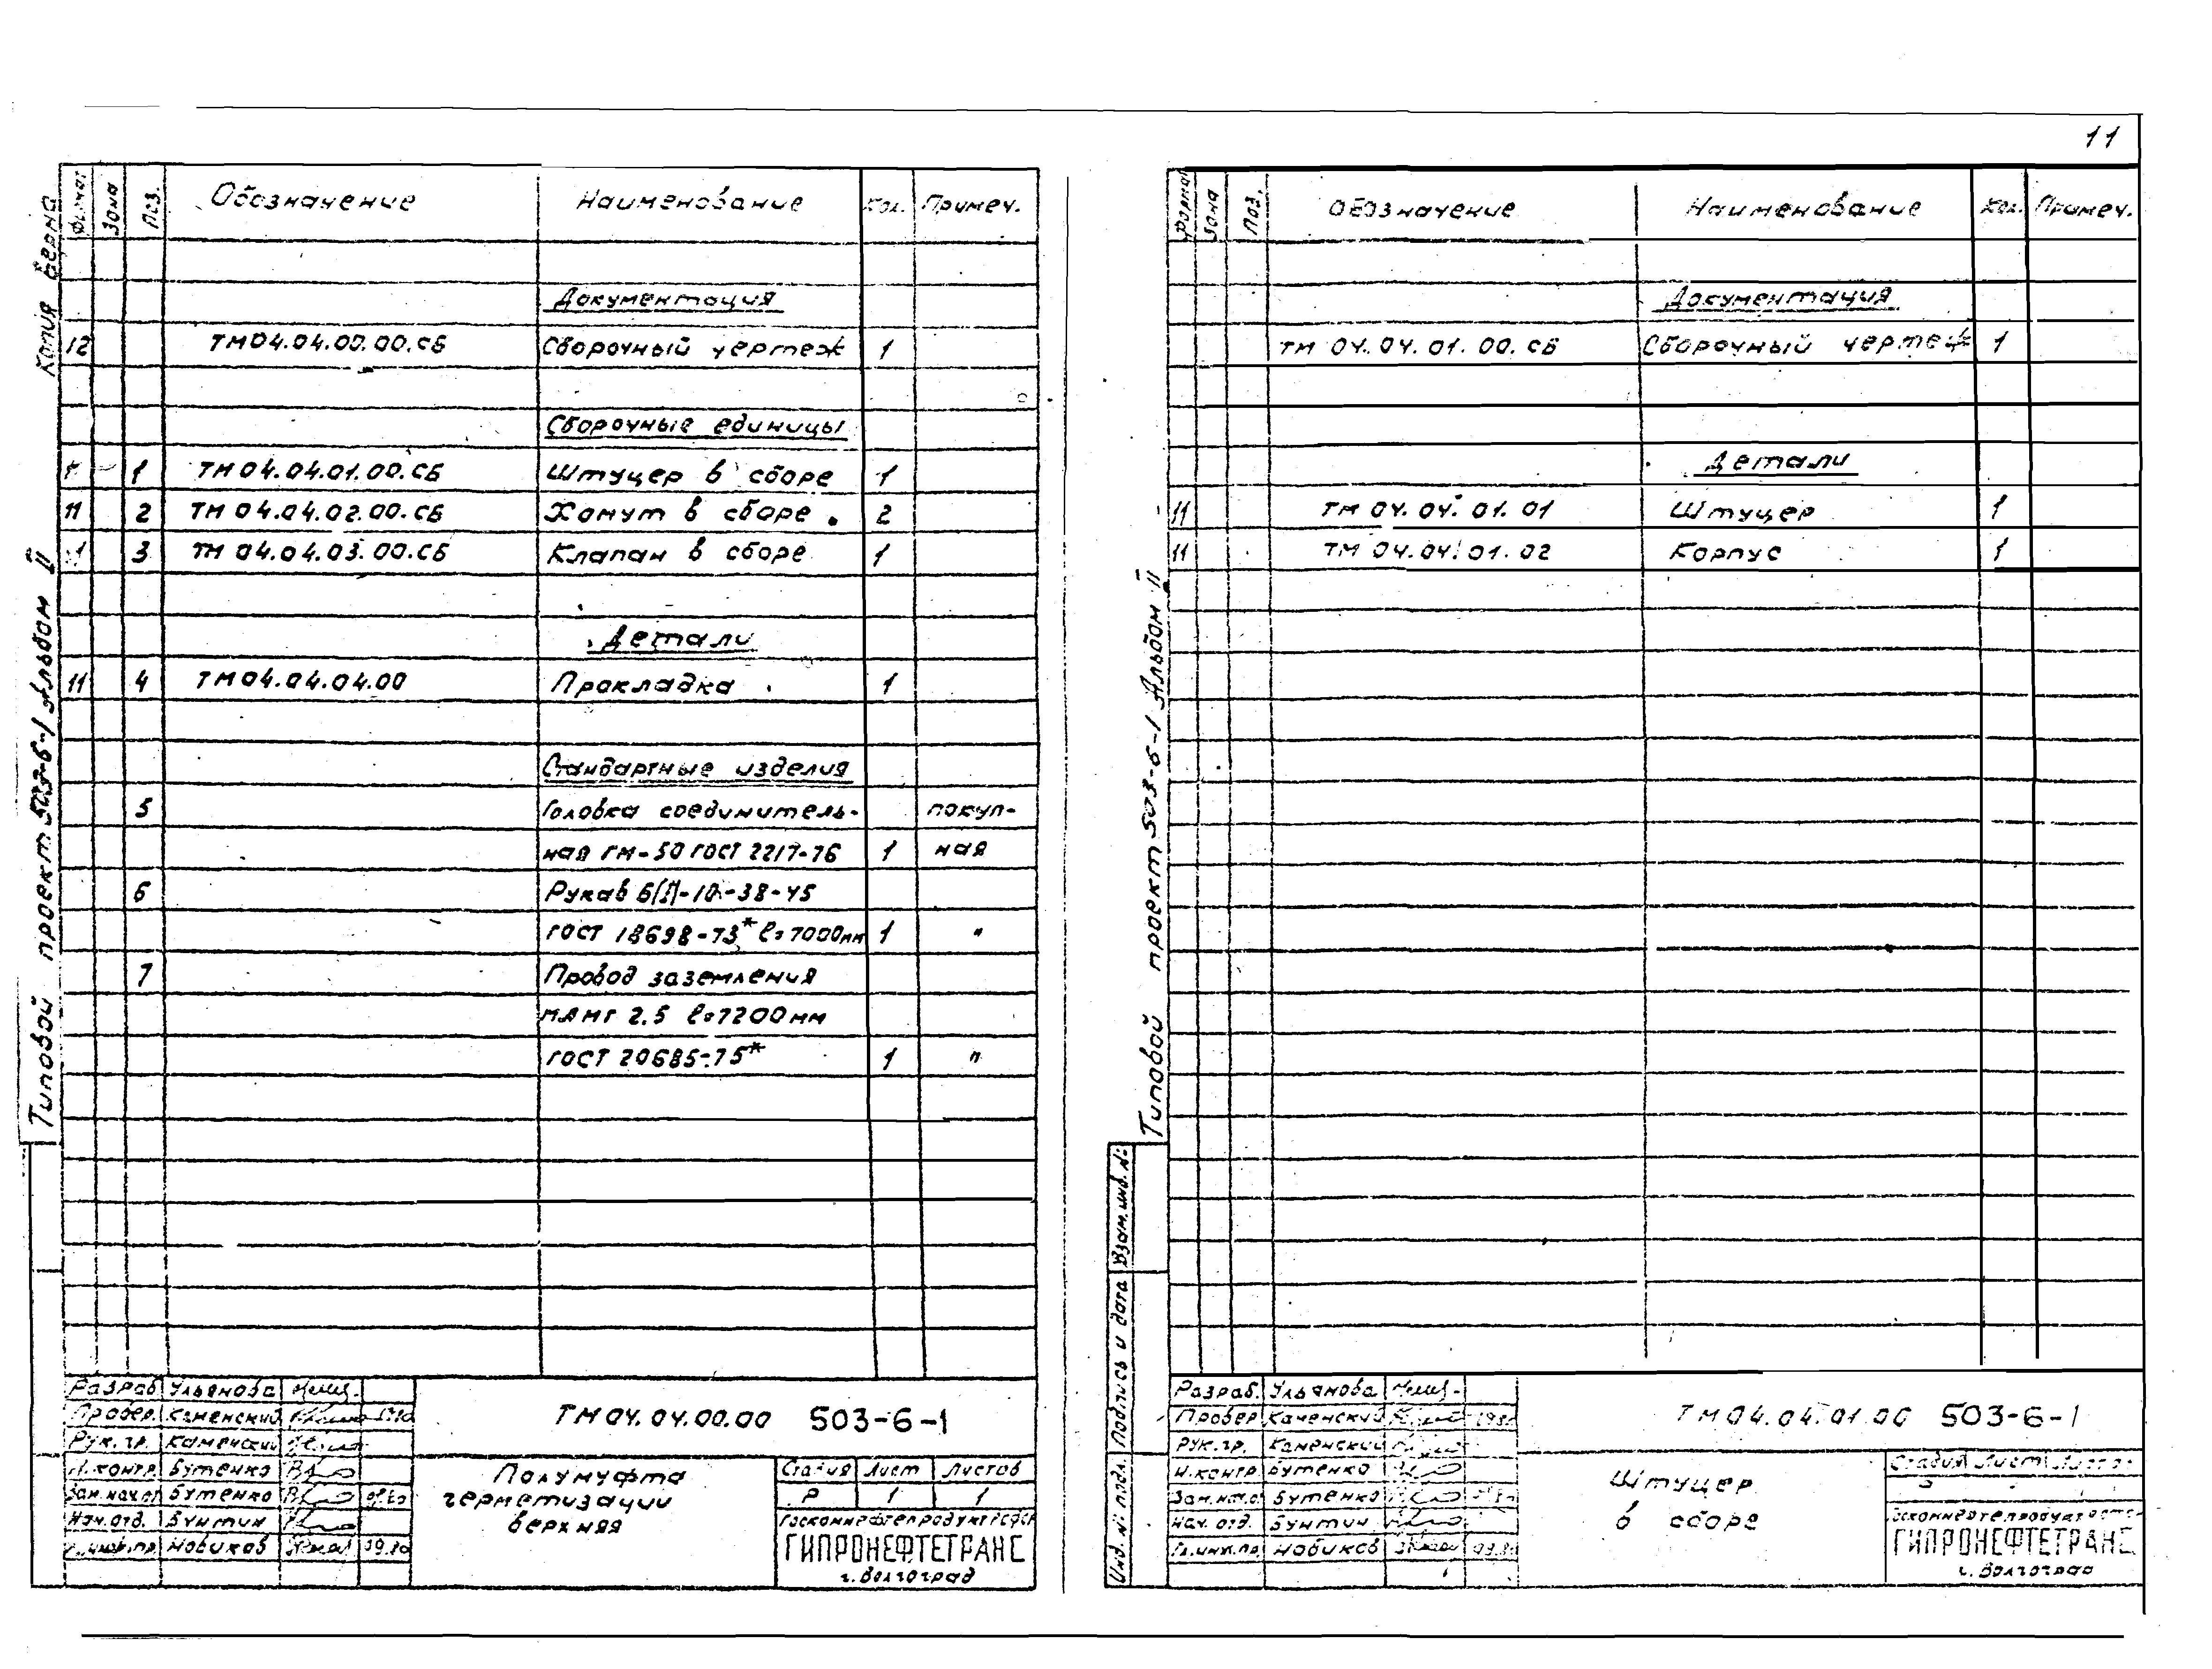 11
Копия верна
Типовой проект 503-6-1 Альбом II
Зона Поз. Обозначение Наименование Кол. Примеч.
Документация
12 ТМ04.04.00.00.СБ Сборочный чертеж 1
Сборочные единицы
1 ТМ04.04.01.00.СБ Штуцер в сборе 1
11 2 ТМ04.04.02.00.СБ Хомут в сборе 2
3 ТМ04.04.03.00.СБ Клапан в сборе 1
Детали
11 4 ТМ04.04.04.00 Прокладка 1
Стандартные изделия
5 Головка соединитель- покуп-
ная ГМ-50 ГОСТ 2217-76 1 ная
6 Рукав Б(I)-10-38-45
ГОСТ 18698-73* l=7000мм 1 "
7 Провод заземления
2.5 l=7200мм
ГОСТ 20685-75* 1 "
Разраб Ульянова
Провер. Каменский
Рук. гр. Каменский
Н. контр. Бутенко
Зам.нач.от Бутенко
Нач.отд. Бунтин
Новиков 09.80
ТМ04.04.00.00 503-6-1
Полумуфта
герметизации
верхняя
Стадия Лист Листов
Р 1 1
Госкомнефтепродукт РСФСР
ГИПРОНЕФТЕТРАНС
г. Волгоград
Типовой проект 503-6-1 Альбом II
Взам.инв.№
Подпись и дата
Инв. № подл.
Формат Зона Поз. Обозначение Наименование Кол. Примеч.
Документация
ТМ 04.04.01.00.СБ Сборочный чертеж 1
Детали
11 ТМ 04.04.01.01 Штуцер 1
11 ТМ 04.04.01.02 Корпус 1
Разраб. Ульянова
Провер Каменский
Рук. гр. Каменский
Н.контр Бутенко
Зам.нач.о. Бутенко
Нач. отд. Бунтин
Гл.инж.пр Новиков
ТМ04.04.01.00 503-6-1
Штуцер
в сборе
Стадия Лист
ГИПРОНЕФТЕТРАНС
г. Волгоград